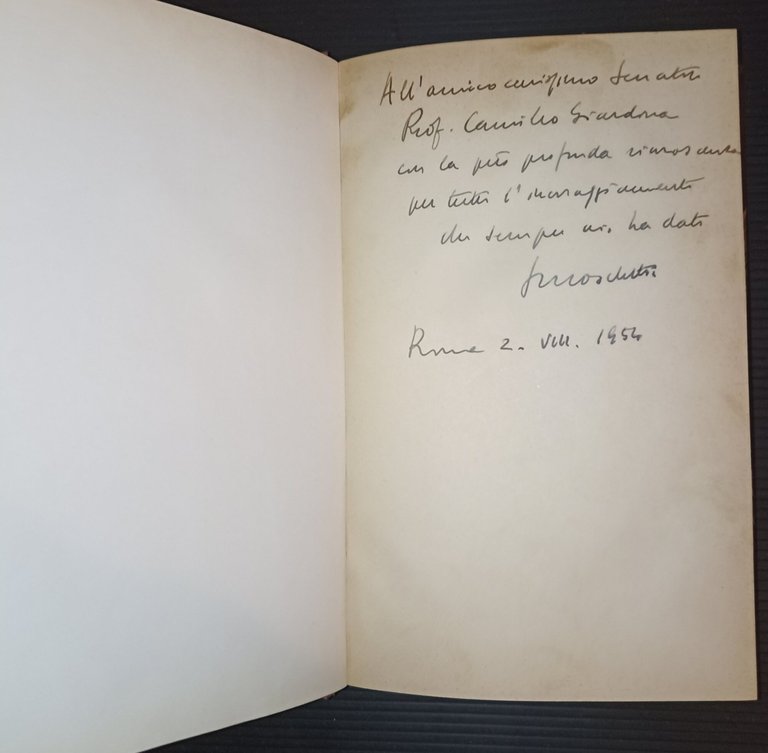 All'amico carissimo Senatore
Prof. Camillo Giardina
con la più profonda riconoscenza
per tutti l'incoraggiamenti
che sempre mi ha dato
Roma 2. VIII. 1954